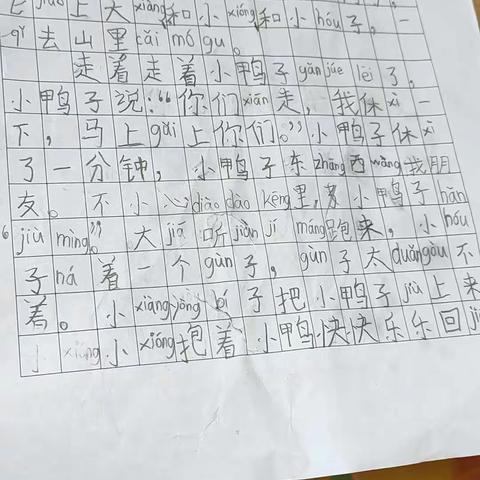 上大xiàng和小xióng和小hóu子，一
qǐ去山里cǎi mó gu。
走着走着小鸭子gǎn júe lèi了，
小鸭子说：“你们xiān走，我休xi一
下，马上gǎi上你们。”小鸭子休xi
了一分钟，小鸭子东zhāng西wàng找朋
友。不小心diào dào kēng里，小鸭子hǎn
jiù mìng”。大jiā听jiàn jí máng跑来，小hóu
子ná着一个gùn子，gùn子太duǎn gòu不
着。小xiàng yòng bí子把小鸭子jiù上来
小xióng抱着小鸭快快乐乐回